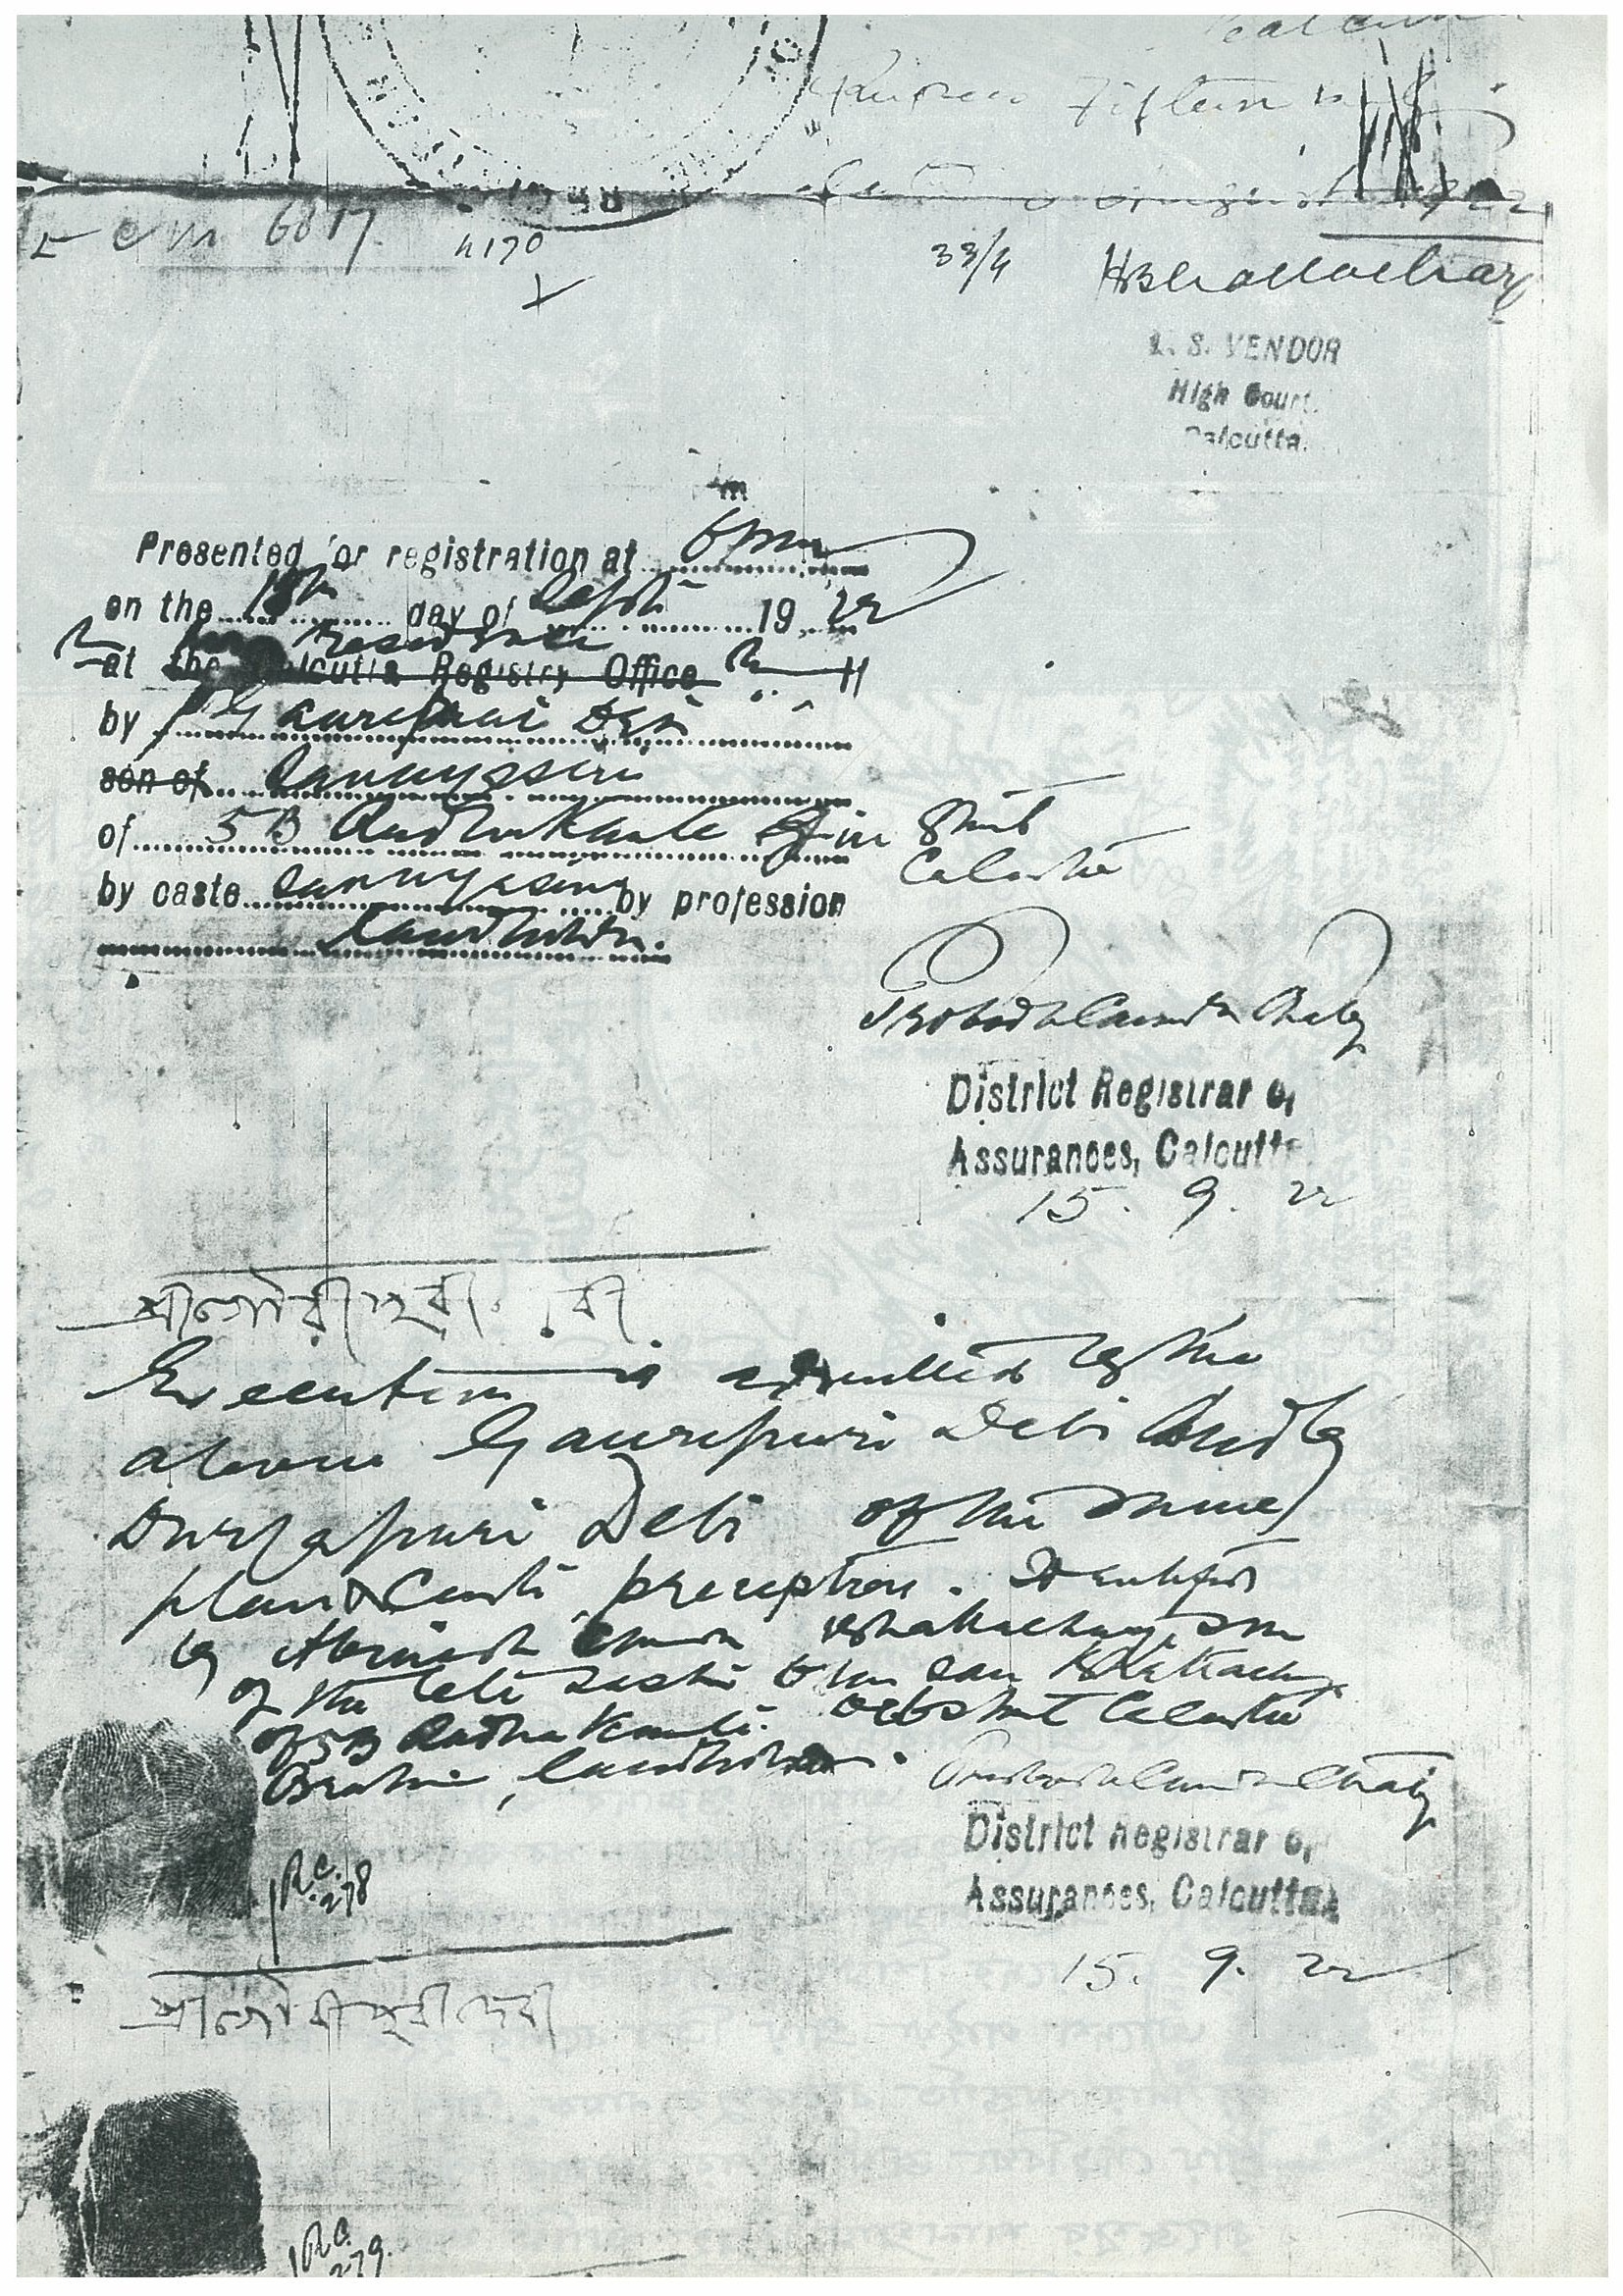 Rupees Fifteen
6817
4170
33/4
HBhattacharjy
L. S. VENDOR
High Court
Calcutta.
Presented for registration at 6 pm
on the 15th day of Sept 1922
at her residence
the Calcutta Registry Office
by Gauripuri Debi
son of Sannyasini
of 5 B Radha Kanta Street
Calcutta
by caste Sannyasini by profession
Landholder.
Probodh Chandra Chatty
District Registrar of
Assurances, Calcutta
15. 9. 22
শ্রীগৌরীপুরী দেবী
Execution is admitted by the
above Gauripuri Debi and by
Durgapuri Debi of the same
place & Caste preceptress. Identified
by Abinash Chandra Bhattacharjy son
of the late Bhattacharjy
of 5B Radha Kanta Street Calcutta
Brahmin, landholder.
Probodh Chandra Chatty
District Registrar of
Assurances, Calcutta
15. 9. 22
R.C.
278
শ্রীগৌরীপুরী দেবী
R.C.
279.